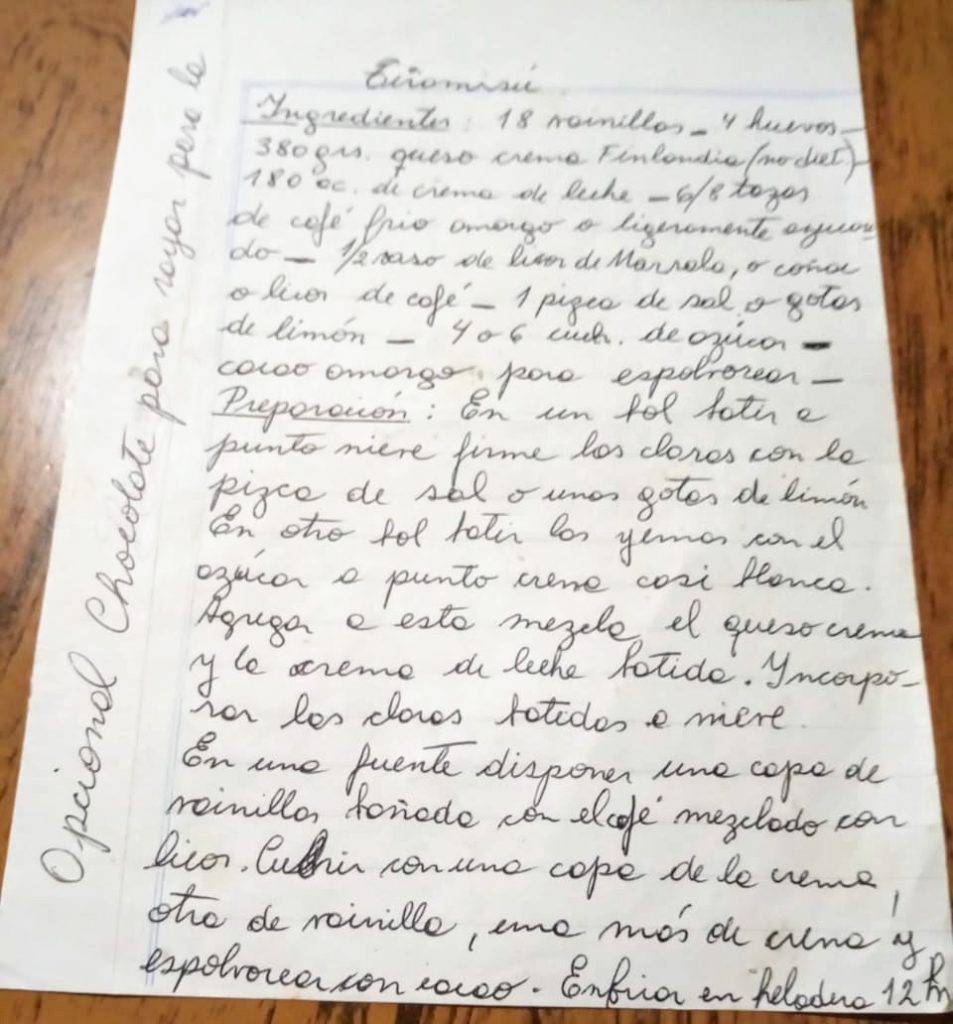 Tiramisú
Ingredientes: 18 vainillas - 4 huevos -
380 grs. queso crema Finlandia (no diet) -
180 cc. de crema de leche - 6/8 tazas
de café frio amargo o ligeramente azucara
do - 1/2 vaso de licor de Marsala, o coñac
o licor de café - 1 pizca de sal o gotas
de limón - 4 o 6 cuch. de azúcar -
cacao amargo para espolvorear -
Preparación: En un bol batir a
punto nieve firme las claras con la
pizca de sal o unas gotas de limón
En otro bol batir las yemas con el
azúcar a punto crema casi blanca.
Agregar a esta mezcla el queso crema
y la crema de leche batida. Incorpo-
rar las claras batidas a nieve.
En una fuente disponer una capa de
vainillas bañada con el café mezclado con
licor. Cubrir con una capa de la crema,
otra de vainilla, una más de crema y
espolvorear con cacao. Enfriar en heladera 12 h
Opcional Chocolate para rayar para la